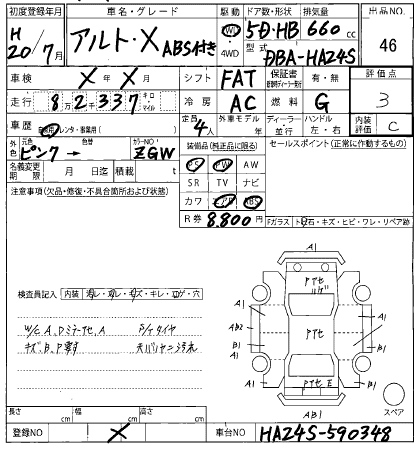 初度登録年月 車名・グレード 駆動 ドア数・形状 排気量 出品NO.
H20/7月 アルト・X ABS付き 2WD 4WD 5D・HB 660cc 46
型式 DBA-HA24S
車検 X年X月 シフト FAT 保証書 有・無 評価点
走行 8万2千337 キロ・マイル 冷房 AC 燃料 G 3
車歴 自家用・レンタ・事業用( ) 定員 4人 外車モデル 年 ディーラー・並行 ハンドル 左・右 内装評価 C
外色 元色 ピンク→ 色替 カラーNO ZGW 装備品(純正品に限る) セールスポイント(正常に作動するもの)
名義変更期限 月 日迄 積載 t PS PW AW
注意事項(欠品・修復・不具合箇所および状態) SR TV ナビ
カワ エアB ABS
R券 8,800円 Fガラス トビ石・キズ・ヒビ・ワレ・リペア跡
検査員記入 内装
W/C A、Dミラーキセ、A
キズ、B、P要す
A1
A1 A1
AB2
B1 B1
B1
AB1
スペア
長さ cm 幅 cm 高さ cm
登録NO X 車台NO HA24S-590348